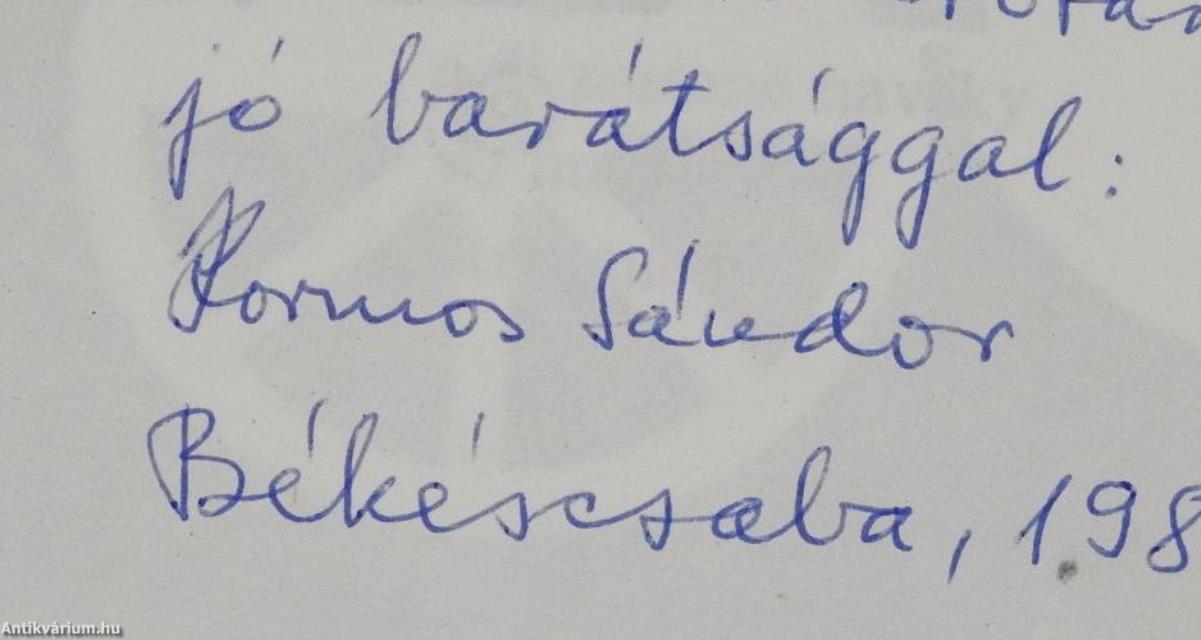 jó barátsággal:
Kormos Sándor
Békéscsaba, 198
Antikvárium.hu